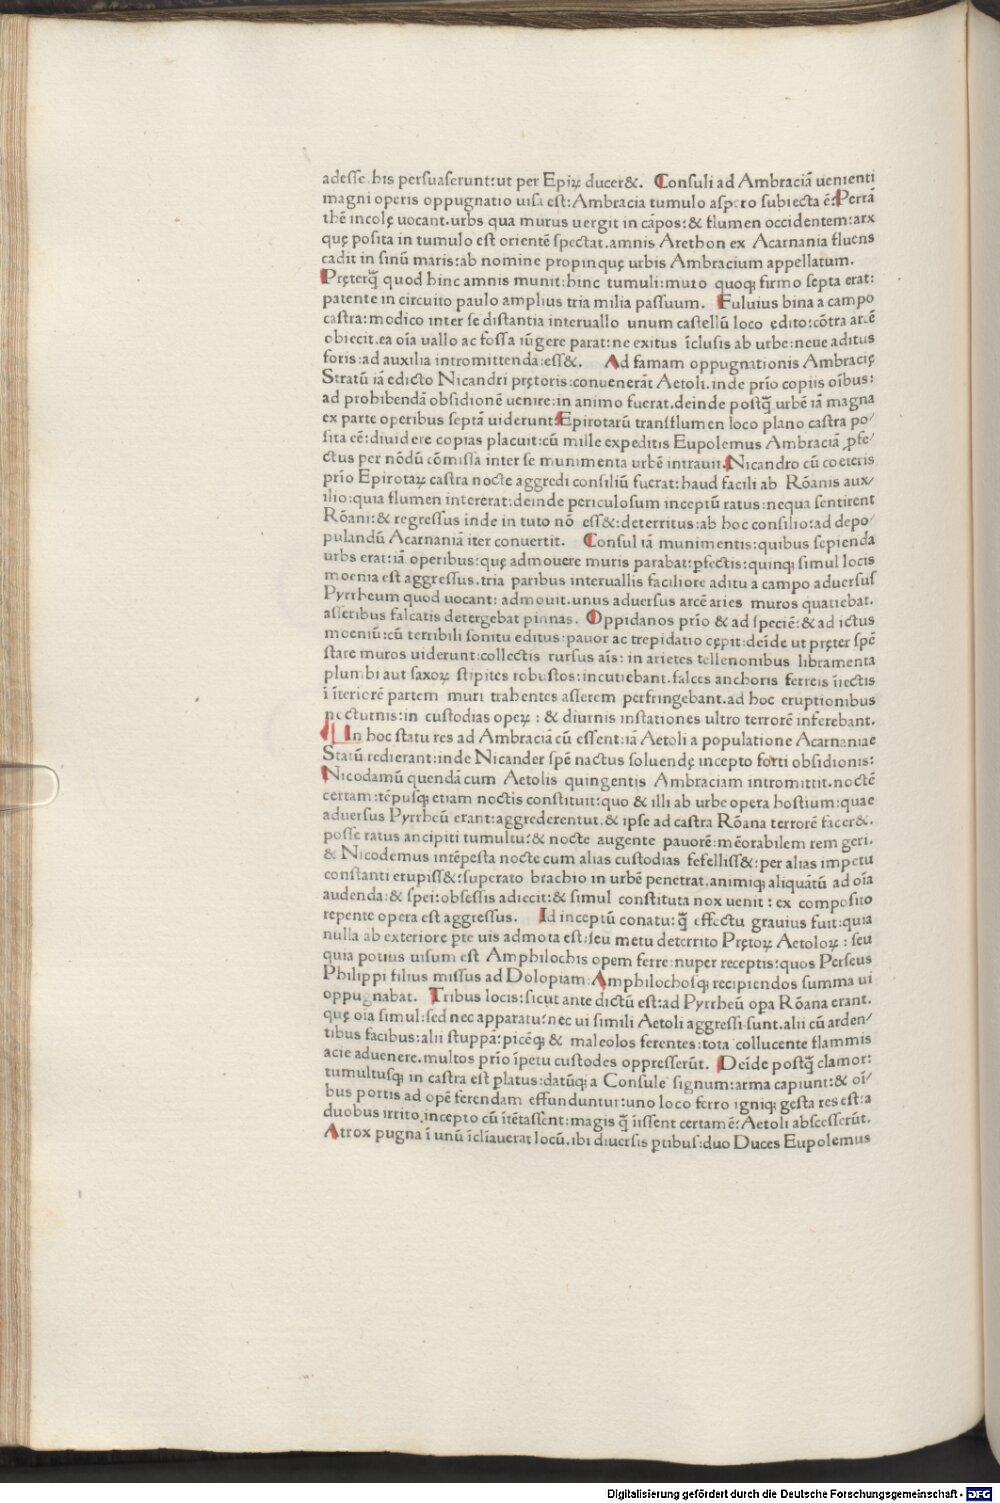 adesse.his persuaserunt:ut per Epiꝝ ducer&. Consuli ad Ambraciā uenienti
magni operis oppugnatio uisa est:Ambracia tumulo aspero subiecta ē:Perrā
thē incolę uocant.urbs qua murus uergit in cāpos:& flumen occidentem:arx
quę posita in tumulo est orientē spectat.amnis Arethon ex Acarnania fluens
cadit in sinū maris:ab nomine propinquę urbis Ambracium appellatum.
Pręterq̄ quod hinc amnis munit:hinc tumuli:muro quoqꝫ firmo septa erat:
patente in circuito paulo amplius tria milia passuum. Fuluius bina a campo
castra:modico inter se distantia interuallo unum castellū loco edito:cōtra arcē
obiecit.ea oīa uallo ac fossa iūgere parat:ne exitus īclusis ab urbe:neue aditus
foris:ad auxilia intromittenda:ess&. Ad famam oppugnationis Ambracię
Stratū iā edicto Nicandri prętoris:conuenerāt Aetoli.inde prīo copiis oībus:
ad prohibendā obsidionē uenire:in animo fuerat.deinde postq̄ urbē iā magna
ex parte operibus septā uiderunt:Epirotarū transflumen loco plano castra po/
sita eē:diuidere copias placuit:cū mille expeditis Eupolemus Ambraciā ꝓfe/
ctus per nōdū cōmissa inter se munimenta urbē intrauit.Nicandro cū cœteris
prīo Epirotaꝝ castra nocte aggredi consiliū fuerat:haud facili ab Rōanis aux/
ilio:quia flumen intererat:deinde periculosum inceptū ratus:nequa sentirent
Rōani:& regressus inde in tuto nō ess&:deterritus:ab hoc consilio:ad depo/
pulandū Acarnaniā iter conuertit. Consul iā munimentis:quibus sepienda
urbs erat:iā operibus:quę admouere muris parabat:ꝑfectis:quinqꝫ simul locis
moenia est aggressus.tria paribus interuallis faciliore aditu a campo aduersus
Pyrrheum quod uocant: admouit.unus aduersus arcē aries muros quatiebat.
asseribus falcatis detergebat pinnas. Oppidanos prīo & ad speciē:& ad ictus
moeniū:cū terribili sonitu editus:pauor ac trepidatio cępit:deīde ut pręter spē
stare muros uiderunt:collectis rursus aīs: in arietes tellenonibus libramenta
plumbi aut saxoꝝ stipites robustos:incutiebant.falces anchoris ferreis īiectis
ī īteriorē partem muri trahentes asserem perfringebant.ad hoc eruptionibus
nocturnis:in custodias opeꝝ : & diurnis instationes ultro terrorē inferebant.
In hoc statu res ad Ambraciā cū essent:iā Aetoli a populatione Acarnaniae
Statū redierant:inde Nicander spē nactus soluendę incepto forti obsidionis:
Nicodamū quendā cum Aetolis quingentis Ambraciam intromittit.noctē
certam:tēpusqꝫ etiam noctis constituit:quo & illi ab urbe opera hostium:quae
aduersus Pyrrheū erant:aggrederentut.& ipse ad castra Rōana terrorē facer&.
posse ratus ancipiti tumultu:& nocte augente pauorē:mēorabilem rem geri.
& Nicodemus intēpesta nocte cum alias custodias fefelliss&:per alias impetu
constanti erupiss&:superato brachio in urbē penetrat.animiqꝫ aliquātū ad oīa
audenda:& spei:obsessis adiecit:& simul constituta nox uenit : ex composito
repente opera est aggressus. Id inceptū conatu:q̄ effectu grauius fuit:quia
nulla ab exteriore ꝑte uis admota est:seu metu deterrito Prętoꝝ Aetoloꝝ : seu
quia potius uisum est Amphilochis opem ferre:nuper receptis:quos Perseus
Philippi filius missus ad Dolopiam:Amphilochosqꝫ recipiendos summa ui
oppugnabat. Tribus locis:sicut ante dictū est:ad Pyrrheū opa Rōana erant.
quę oīa simul:sed nec apparatu:nec ui simili Aetoli aggressi sunt.alii cū arden/
tibus facibus:alii stuppā:picēqꝫ & maleolos ferentes:tota collucente flammis
acie aduenere.multos prīo īpetu custodes oppresserūt. Deīde postq̄ clamor:
tumultusqꝫ in castra est ꝑlatus:datūqꝫ a Consule signum:arma capiunt:& oī/
bus portis ad opē ferendam effunduntur:uno loco ferro igniqꝫ gesta res est:a
duobus irrito incepto cū ītētassent:magis q̄ īissent certamē:Aetoli abscesserūt.
Atrox pugna ī unū īclīauerat locū.ibi diuersis ꝑtibus:duo Duces Eupolemus
Digitalisierung gefördert durch die Deutsche Forschungsgemeinschaft - DFG